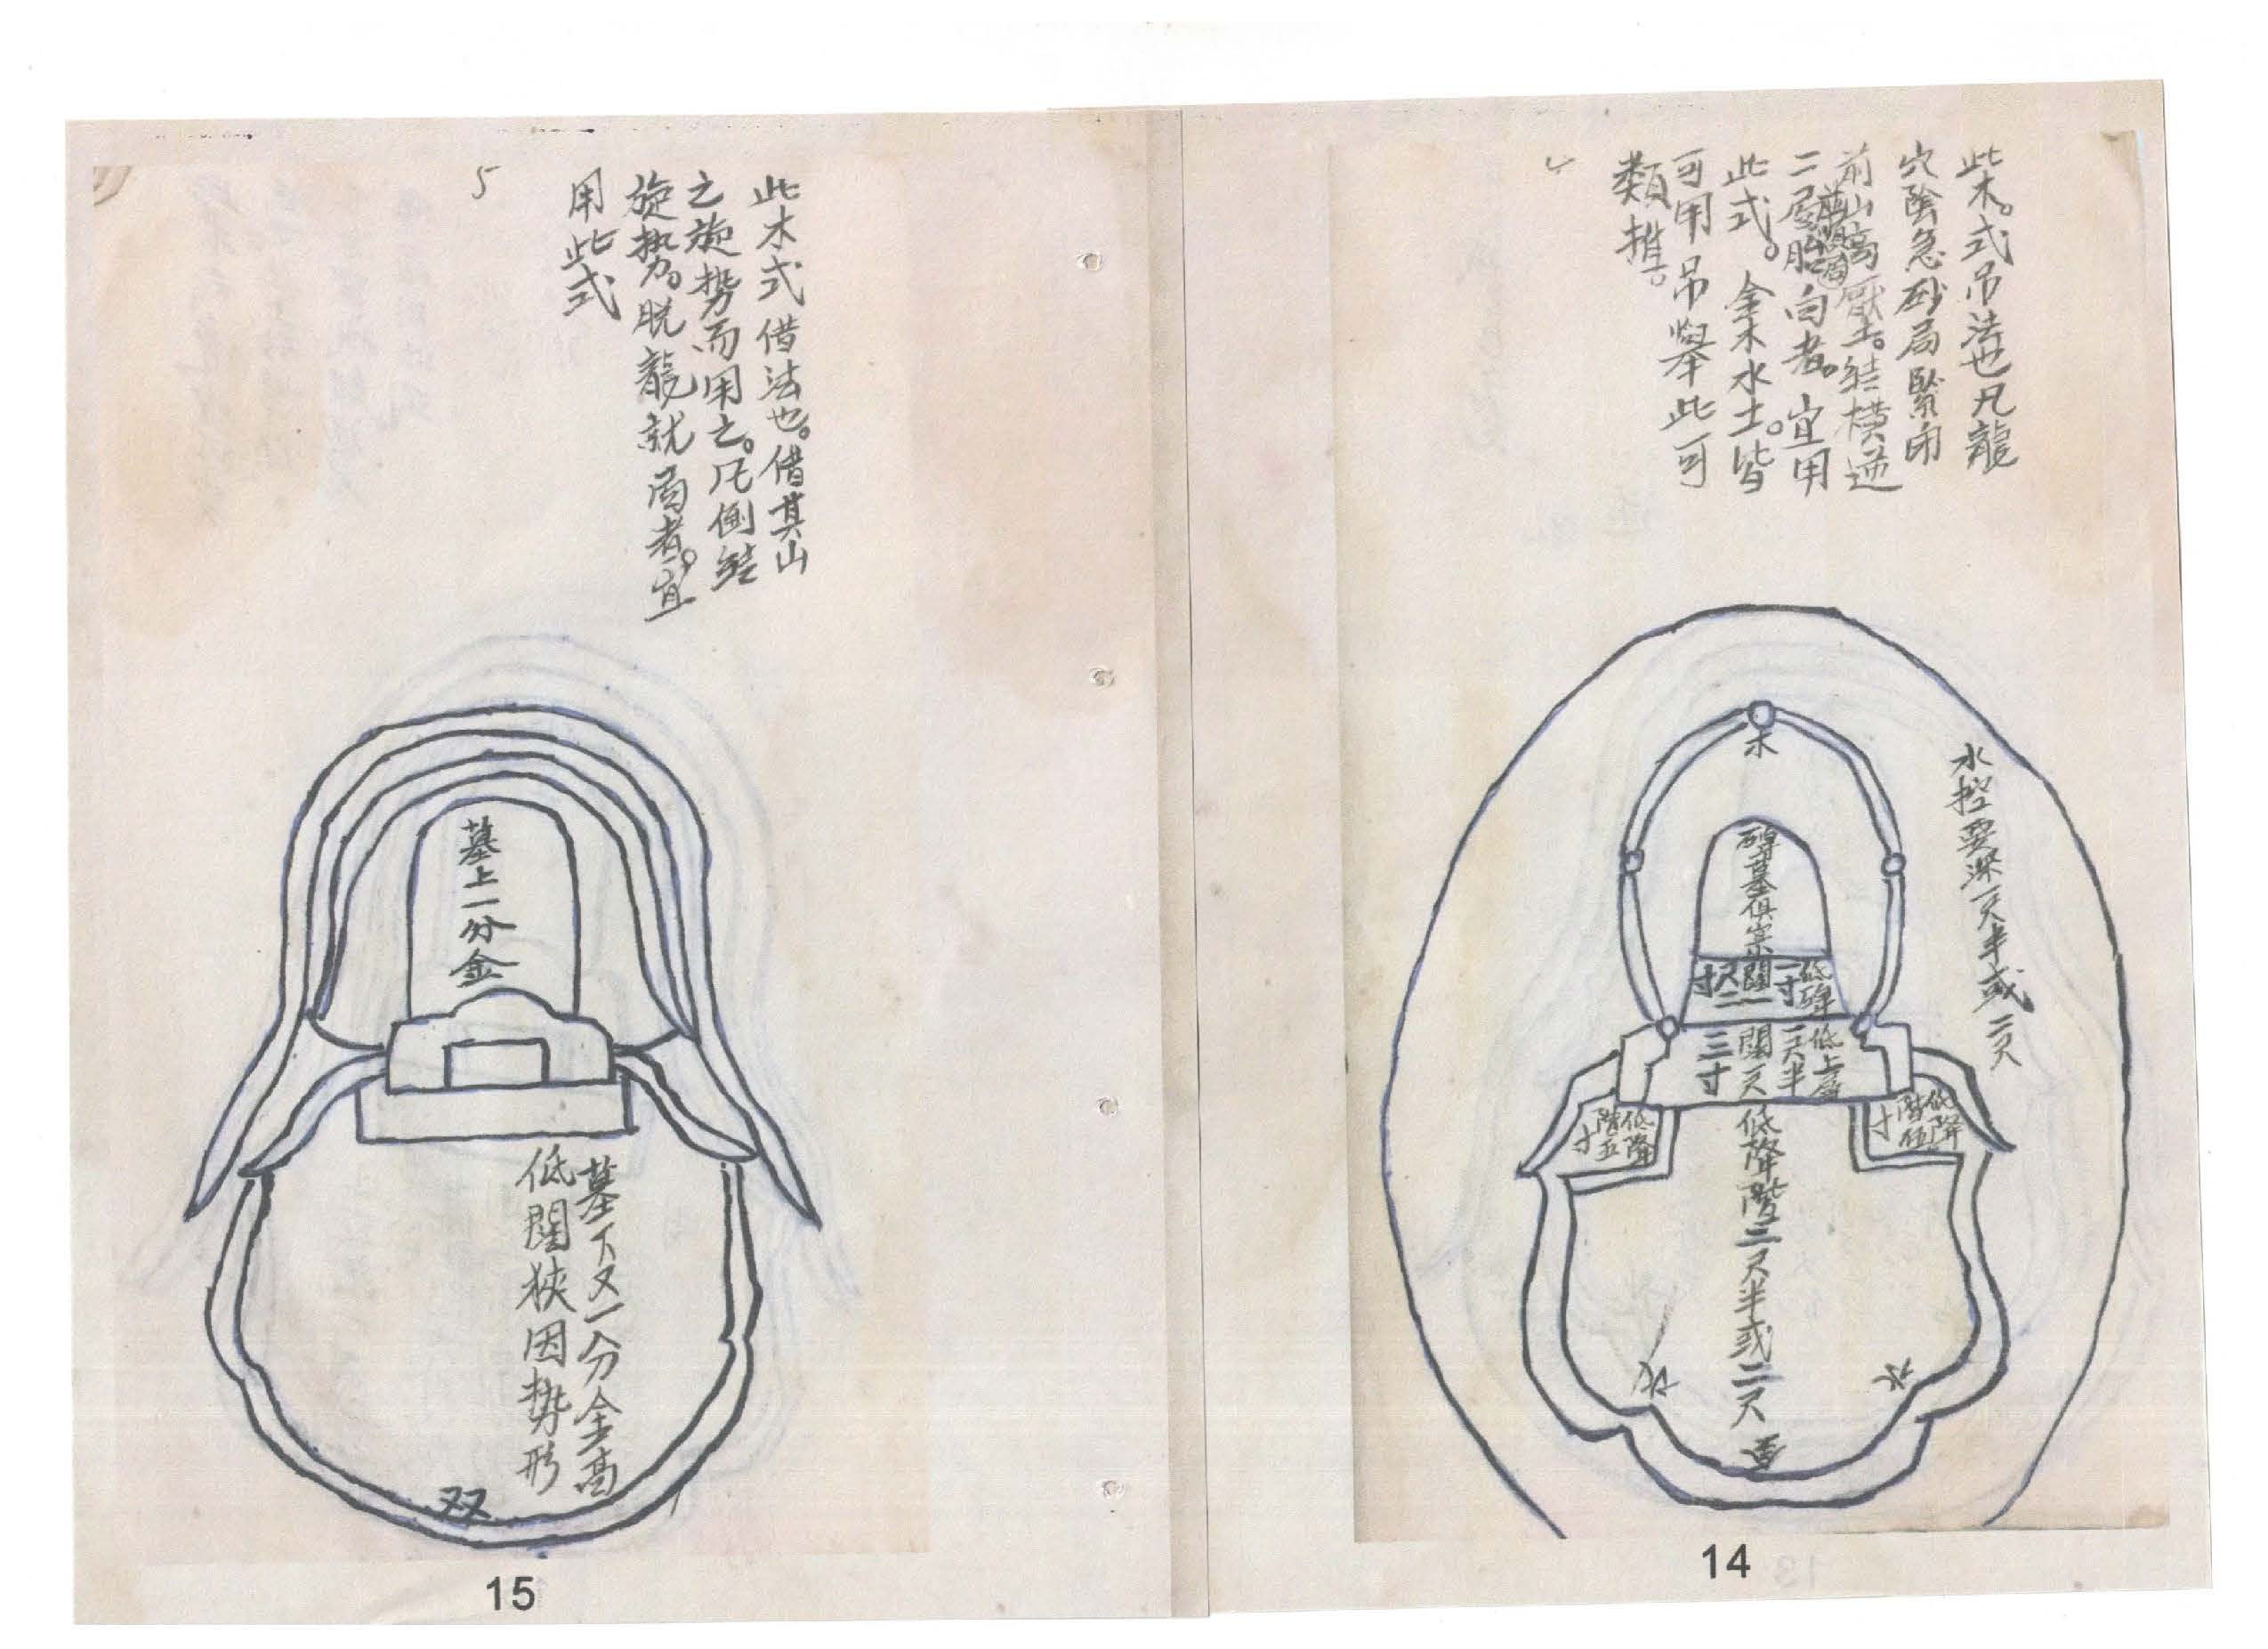 此木。式吊法也凡龍
穴陰急砂局緊闭
前山高壓土。结横逆
二层胎 向者。宜用
此式。金木水土。皆
可用吊舉此可
類推。
水
水控要深一尺半或二尺
碑墓俱
低碑
一寸
闊一
尺二
寸
低上层
一尺半
闊一尺
三寸
低降
階伍
寸
低降
階五
寸
低降階三尺半或二尺
水
水
14
此木式借法也。借其山
之旋势而用之。凡倒结
旋势。脱龍就局者。宜
用此式
5
墓上一分金
墓下又一分金高
低闊狹因势形
双
15